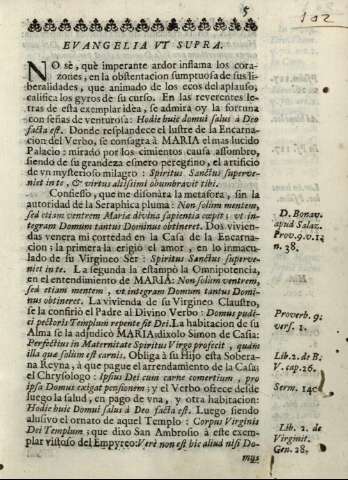 5
102
EVANGELIA VT SUPRA.
NO sè, què imperante ardor inflama los cora-
zones, en la obstentacion sumptuosa de sus li-
beralidades, que animado de los ecos del aplauso,
califica los gyros de su curso. En las reverentes le-
tras de esta exemplar idea, se admira oy la fortuna
con señas de venturosa: Hodie huic domui salus à Deo
facta est. Donde resplandece el lustre de la Encarna-
cion del Verbo, se consagrà à MARIA el mas lucido
Palacio: mirado por los cimientos causa assombro,
siendo de su grandeza esmero peregrino, el artificio
de vn mysterioso milagro: Spiritus Sanctus superve-
niet in te, & virtus altissimi obumbravit tibi.
Confiesso, que me disonàra la metafora, sin la
autoridad de la Seraphica pluma: Non solùm mentem,
sed etiam ventrem Mariæ divina sapientia cœpit; vt in-
tegram Domum tantus Dominus obtineret. Dos vivien-
das venera mi cortedad en la Casa de la Encarna-
cion; la primera la erigiò el amor, en lo inmacu-
lado de su Virgineo Ser: Spiritus Sanctus superve-
niet in te. La segunda la estampò la Omnipotencia,
en el entendimiento de MARIA: Non solùm ventrem,
sed etiam mentem, vt integram Domum tantus Domi-
nus obtineret. La vivienda de su Virgineo Claustro,
se la confiriò el Padre al Divino Verbo: Domus pudi-
ci pectoris Templum repente fit Dei. La habitacion de su
Alma se la adjudicò MARIA dixolo Simon de Casia:
Perfectius in Maternitate Spiritus Virgo profecit, quàm
illa quæ solùm est carnis. Obliga à su Hijo esta Sobera-
na Reyna, à que pague el arrendamiento de la Casa;
el Chrysologo: Ipsius Dei cum carne comertium, pro
ipsa Domus exigat pensionem; y el Verbo ofrece desde
luego la salud, en pago de vna, y otra habitacion:
Hodie huic Domui salus à Deo facta est. Luego siendo
alusivo el ornato de aquel Templo: Corpus Virginis
Dei Templum; que dixo San Ambrosio à este exem-
plar vistoso del Empyreo: Verè non est hic aliud nisi Do-
mus
D. Bonav.
apud Salaz.
Prov. 9. v. 1.
n. 38.
Proverb. 9.
vers. 1.
Lib. 2. de B.
V. cap. 26.
Serm. 140.
Lib. 2. de
Virginit.
Gen. 28.